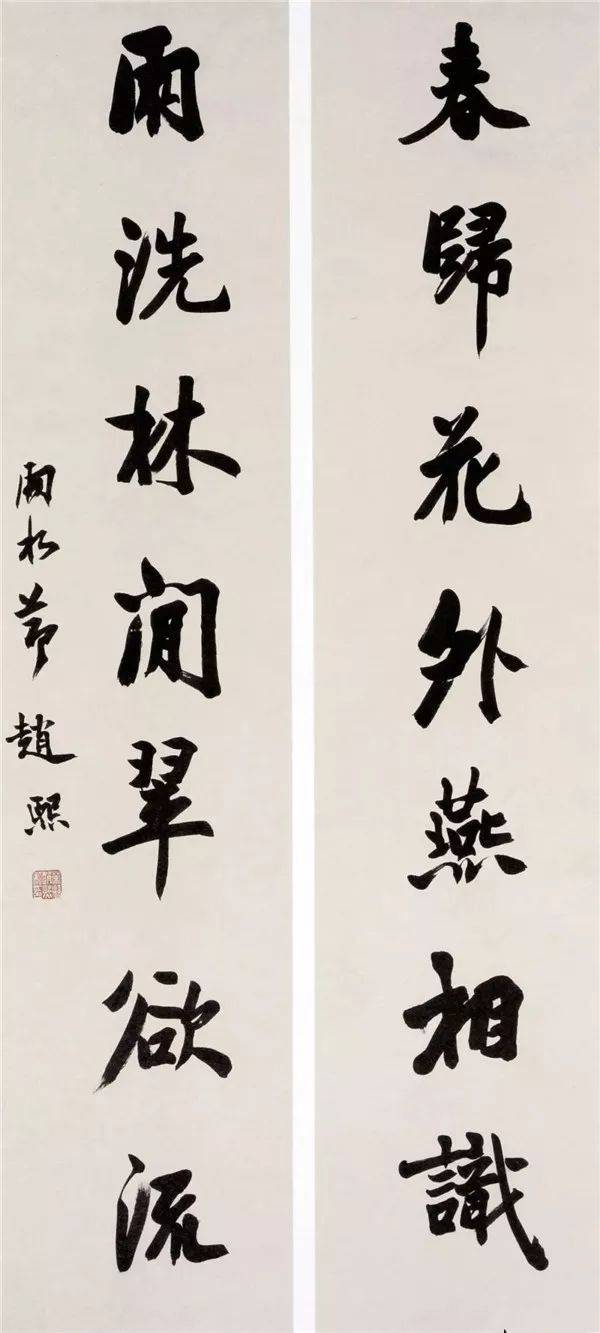 春歸花外燕相識
雨洗林間翠欲流
雨水節 趙熙